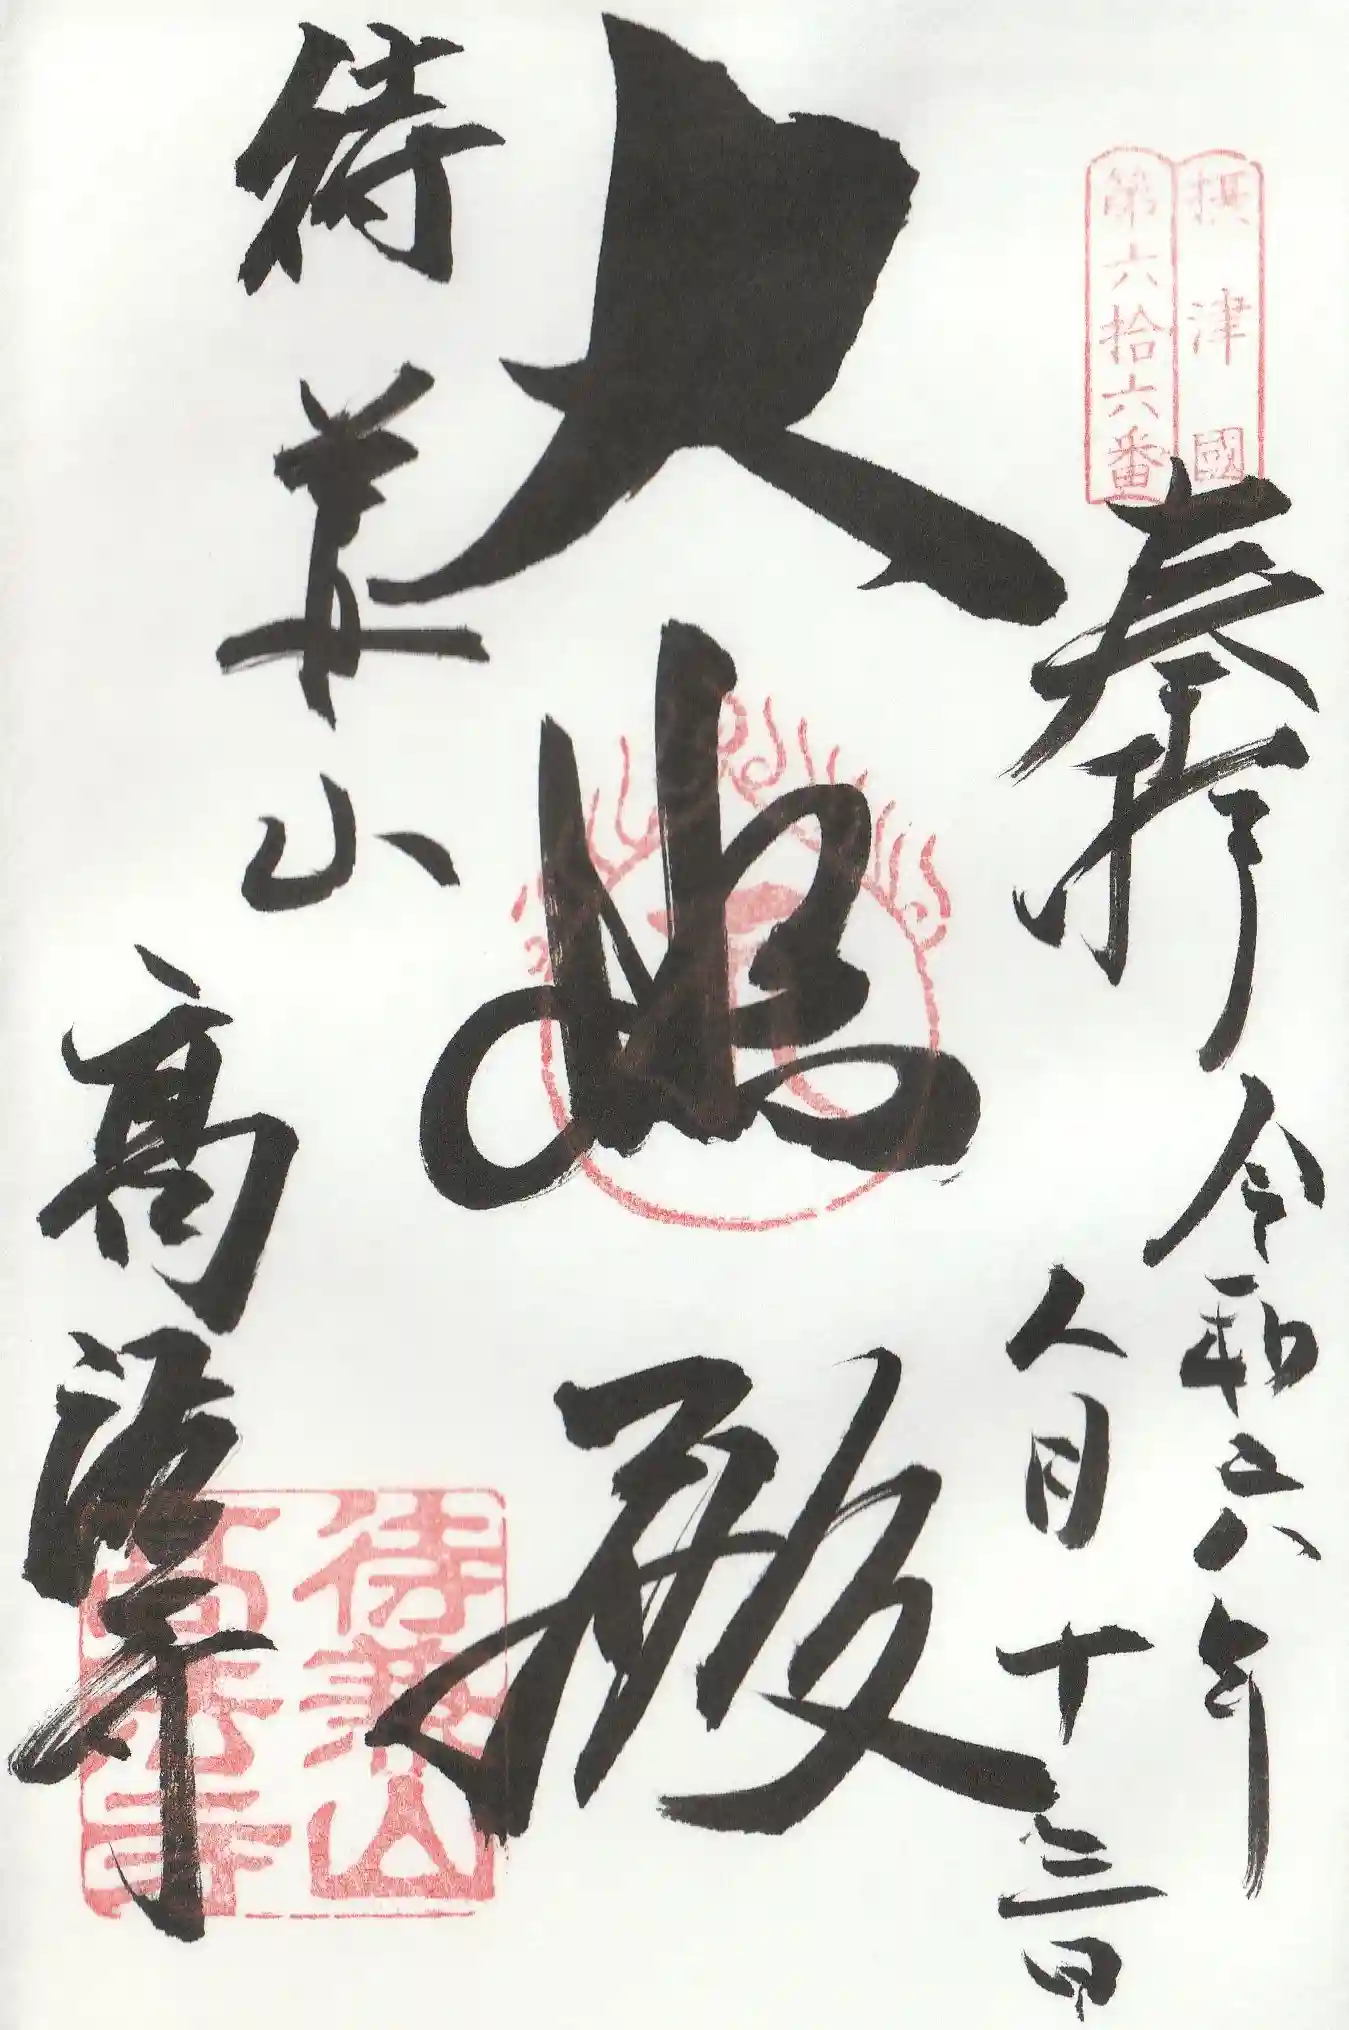 撮津國
第六拾六番
奉拝
令和六年
八月十三日
大悲殿
待兼山
高法寺
待兼山
高法寺